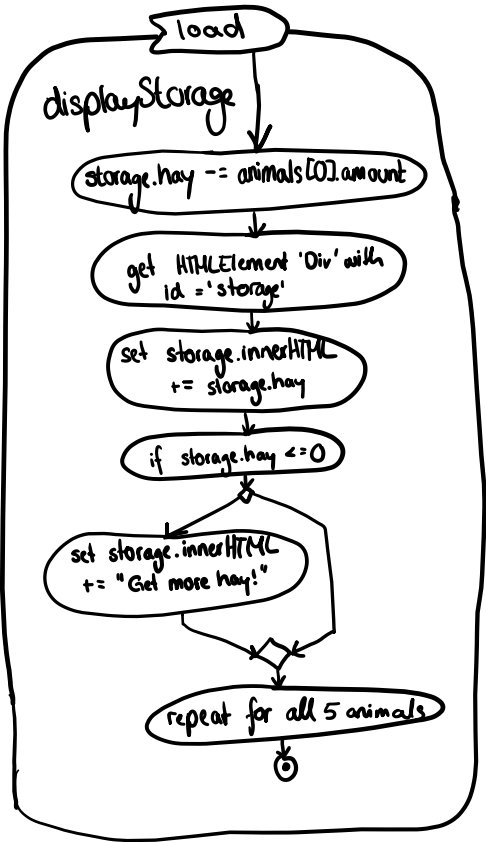 load
displayStorage
storage.hay -= animals[0].amount
get HTMLElement 'Div' with
id = 'storage'
set storage.innerHTML
+= storage.hay
if storage.hay <= 0
set storage.innerHTML
+= "Get more hay!"
repeat for all 5 animals